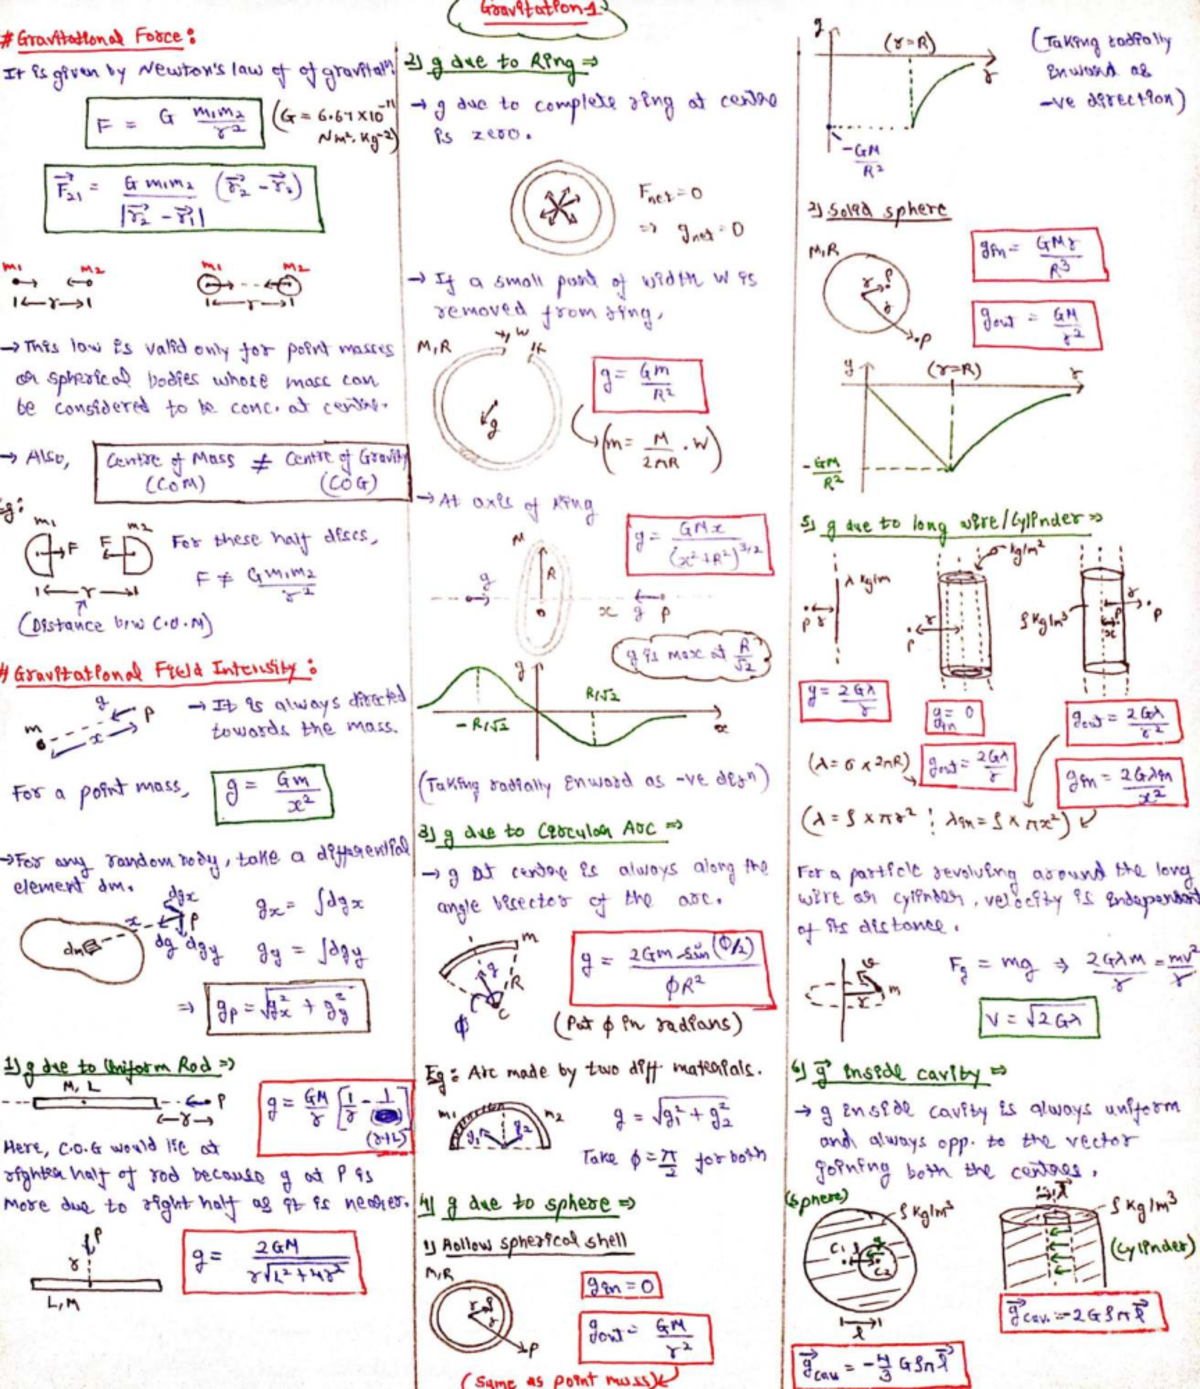 Gravitation-1
# Gravitational Force:
It is given by Newton's law of of gravitatn:
F = G m₁m₂ / r²
(G = 6.67 x 10⁻¹¹
Nm². Kg⁻²)
F⃗₂₁ = G m₁m₂ / |r⃗₂ - r⃗₁| (r⃗₂ - r⃗₁)
m₁ m₂ m₁ m₂
r r
→ This law is valid only for point masses
or spherical bodies whose mass can
be considered to be conc. at centre.
→ Also,
Centre of Mass ≠ Centre of Gravity
(COM) (COG)
Eg:
m₁ m₂
F F
r
For these half discs,
F ≠ Gm₁m₂ / r²
(Distance b/w C.O.M)
# Gravitational Field Intensity:
g P
m x
→ It is always directed
towards the mass.
For a point mass,
g = Gm / x²
→ For any random body, take a differential
element dm.
dgx
x P
dm dg dgy
gx = ∫dgx
gy = ∫dgy
⇒ gp = √gx² + gy²
1) g due to Uniform Rod ⇒
M, L
P
r
g = GM/r [1/r - 1/(r+L)]
Here, C.O.G would lie at
righter half of rod because g at P is
more due to right half as it is nearer.
P
r
L, M
g = 2GM / r√L² + 4r²
2) g due to Ring ⇒
→ g due to complete ring at centre
is zero.
Fnet = 0
⇒ gnet = 0
→ If a small part of width W is
removed from ring,
M, R
W
g
g = Gm / R²
(m = M / 2πR . W)
→ At axis of ring
M
R
g = GMx / (x² + R²)^3/2
g x g P
g is max at R/√2
g
R/√2
- R/√2
x
(Taking radially inward as -ve dirn)
3) g due to Circular Arc ⇒
→ g at centre is always along the
angle bisector of the arc.
m
g
R
ϕ C
g = 2Gm sin(ϕ/2) / ϕR²
(Put ϕ in radians)
Eg: Arc made by two diff. materials.
m₁ m₂
g₁ g₂
g = √g₁² + g₂²
Take ϕ = π/2 for both
4) g due to sphere ⇒
1) Hollow spherical shell
M, R
r P
r
P
gin = 0
gout = GM / r²
(Same as point mass)
g
(r=R)
r
-GM / R²
(Taking radially
inward as
-ve direction)
2) Solid sphere
M, R
r P
r
P
gin = GMr / R³
gout = GM / r²
g (r=R) r
-GM / R²
5) g due to long wire/Cylinder ⇒
λ kg/m
P r
σ kg/m²
r
P
ρ kg/m³
r
P
x
g = 2Gλ / r
gin = 0
gout = 2Gλ / r
gout = 2Gλ / r²
gin = 2Gλin / x²
(λ = σ x 2πR)
(λ = ρ x πr² ; λin = ρ x πx²)
For a particle revolving around the long
wire or cylinder, velocity is independent
of its distance.
v
m
r
Fg = mg ⇒ 2Gλm / r = mv² / r
V = √2Gλ
6) g⃗ inside cavity ⇒
→ g inside cavity is always uniform
and always opp. to the vector
joining both the centres.
(Sphere)
ρ kg/m³
C₁ g
C₂
l
g⃗cav = -4/3 Gρπl⃗
l⃗
ρ kg/m³
(Cylinder)
g⃗cav. = -2Gρπl⃗